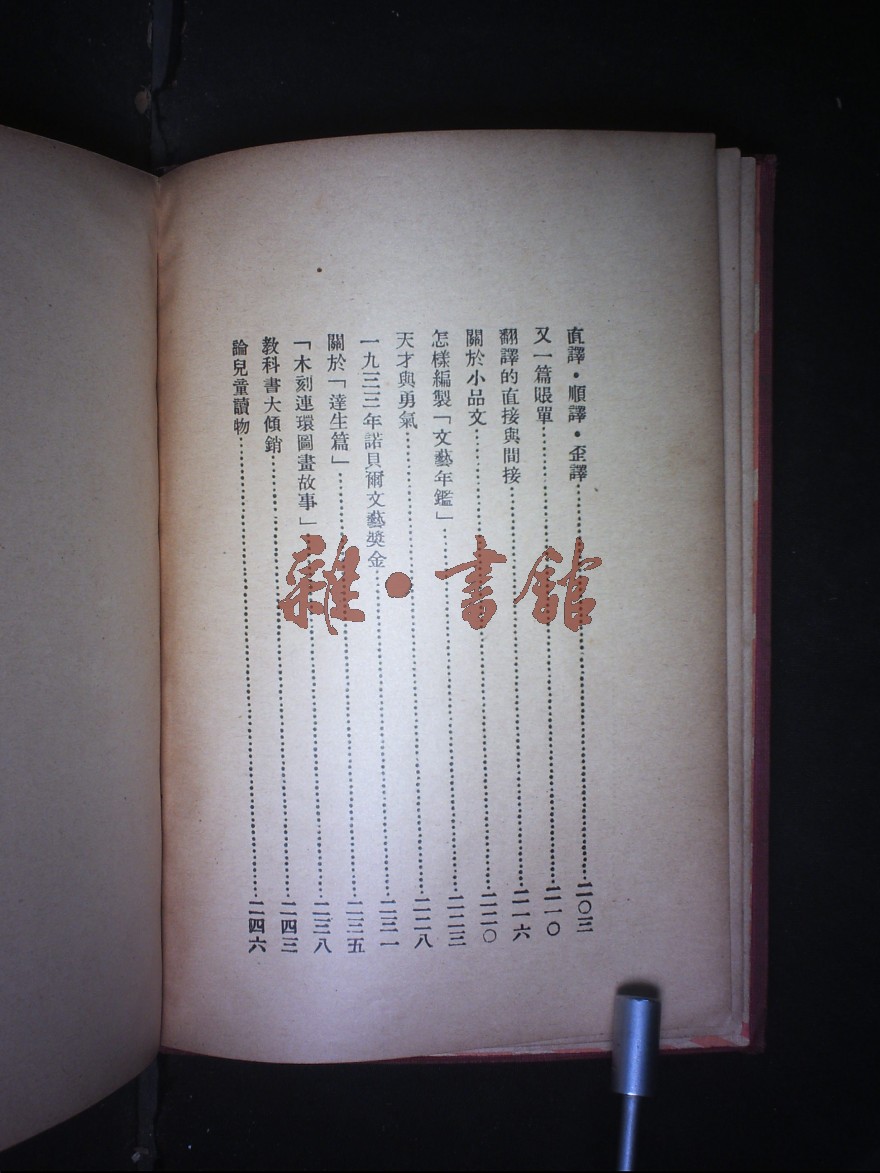 直譯・順譯・歪譯……二〇三
又一篇賬單……二一〇
翻譯的直接與間接……二一六
關於小品文……二二〇
怎樣編製「文藝年鑑」……二二三
天才與勇氣……二二八
一九三三年諾貝爾文藝獎金……二三一
關於「達生篇」……二三五
「木刻連環圖畫故事」……二三八
教科書大傾銷……二四三
論兒童讀物……二四六
雜・書館